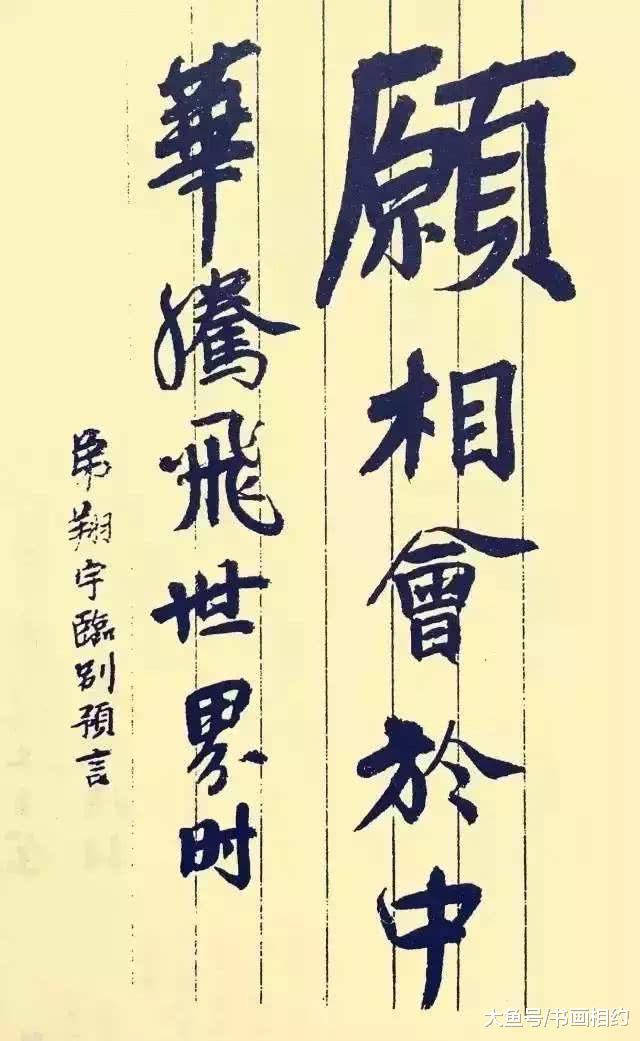 願相會於中
華騰飛世界时
弟翔宇臨别預言
大鱼号/书画相约